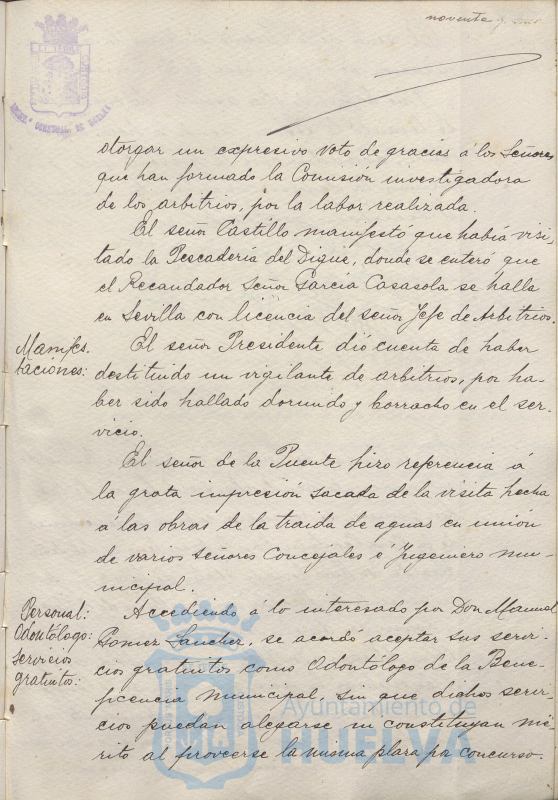 noventa y
otorgar un expresivo voto de gracias á los Señores
que han formado la Comisión investigadora
de los arbitrios, por la labor realizada.
El señor Castillo manifestó que había visi-
tado la Pescadería del Dique, donde se enteró que
el Recaudador Señor García Casasola se halla
en Sevilla con licencia del señor Jefe de Arbitrios.
Manifes-
taciones:
El señor Presidente dió cuenta de haber
destituido un vigilante de arbitrios, por ha-
ber sido hallado dormido y borracho en el ser-
vicio.
El señor de la Puente hizo referencia á
la grata impresión sacada de la visita hecha
á las obras de la traida de aguas en unión
de varios señores Concejales é Ingeniero mu-
nicipal.
Personal:
Odontólogo:
servicios
gratuitos:
Accediendo á lo interesado por Don Manuel
Gomez Sanchez, se acordó aceptar sus servi-
cios gratuitos como Odontólogo de la Bene-
ficencia municipal, sin que dichos servi-
cios puedan alegarse ni constituyan mé-
rito al proveerse la misma plaza por concurso.
Ayuntamiento de
HUELVA